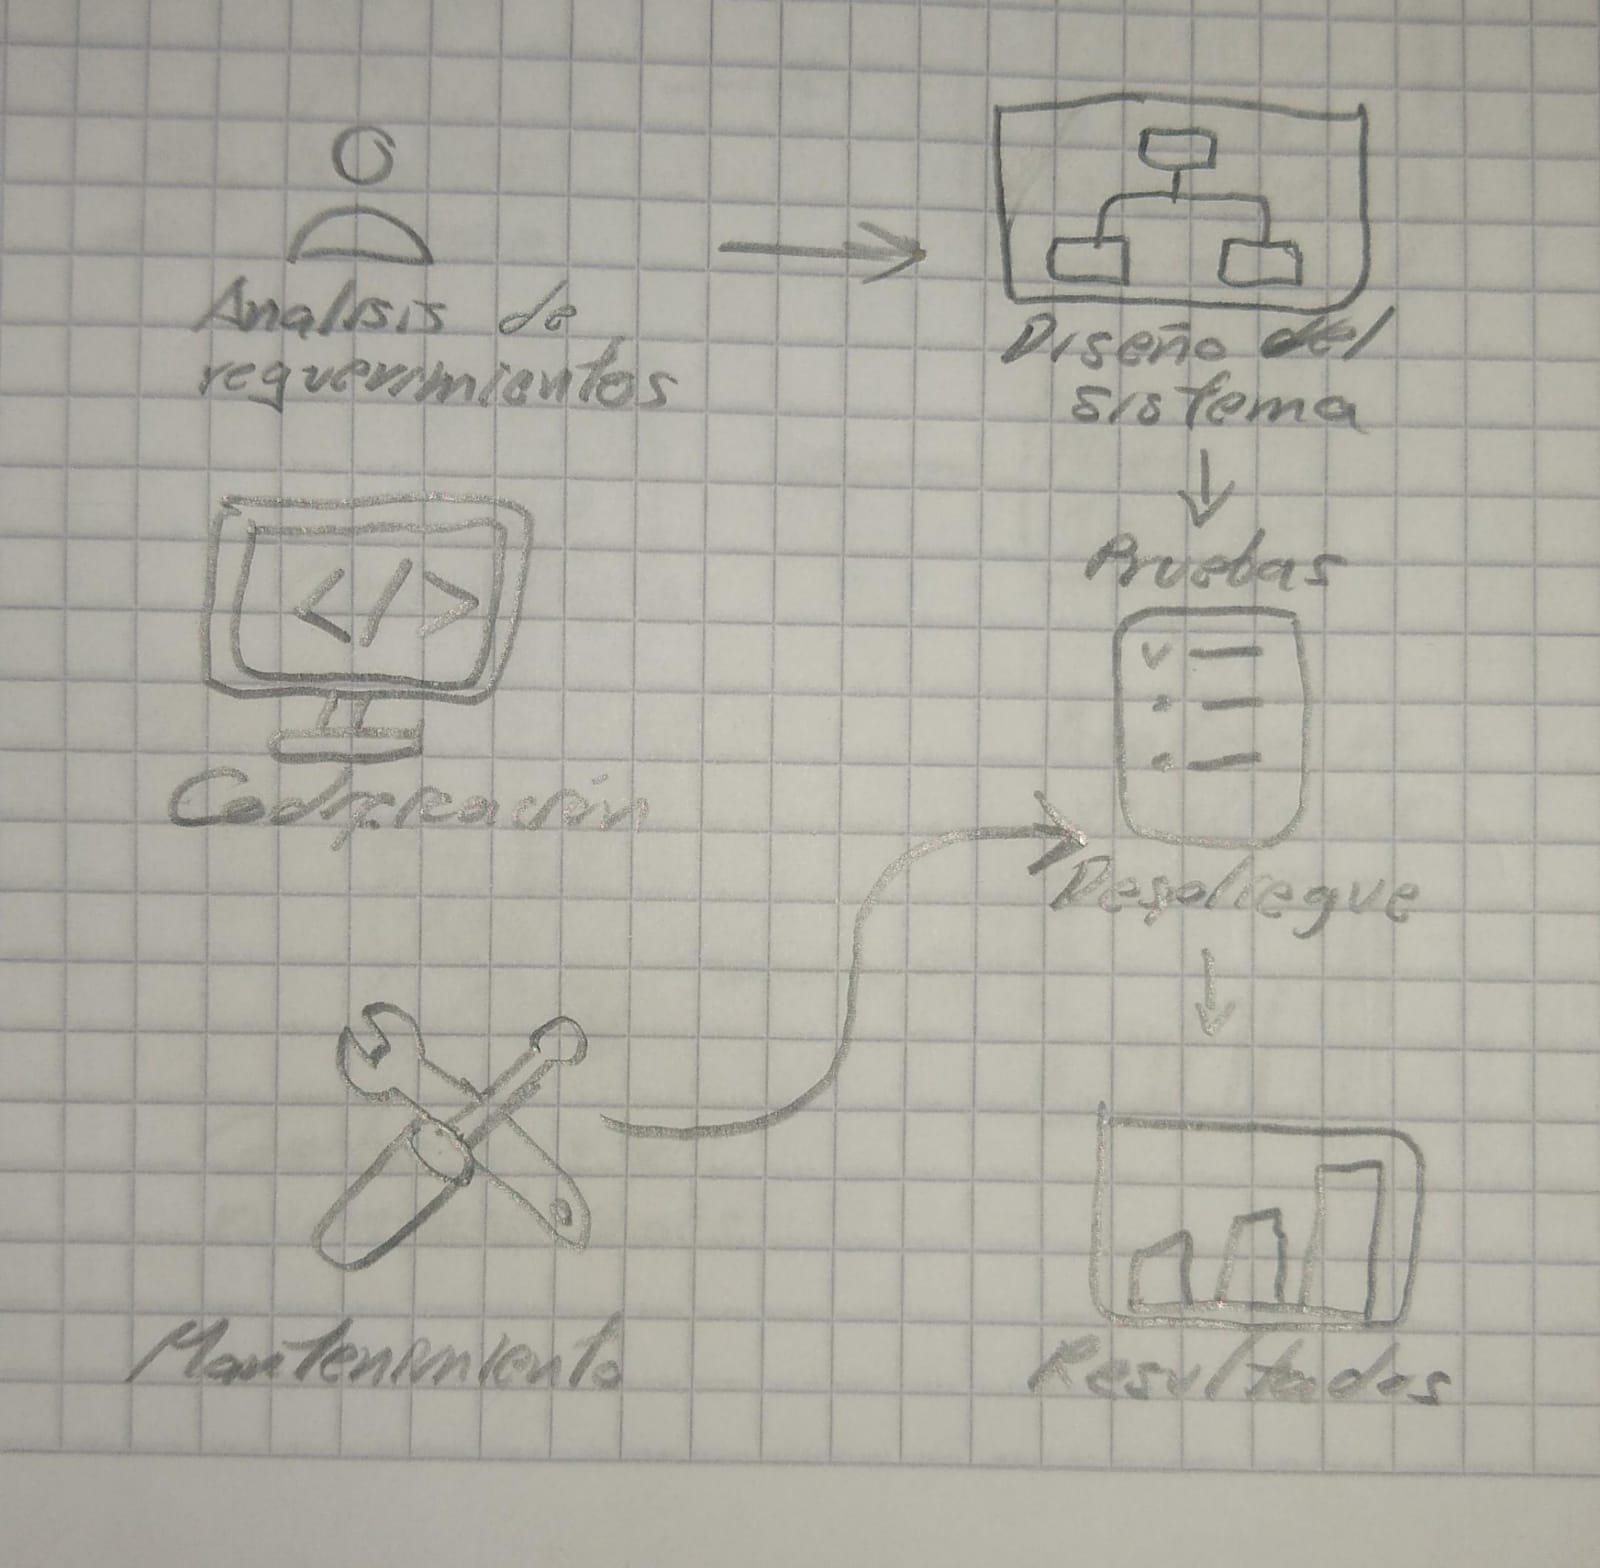 Analisis de
requerimientos
Diseño del
sistema
Pruebas
</>
Codificación
Despliegue
Mantenimiento
Resultados